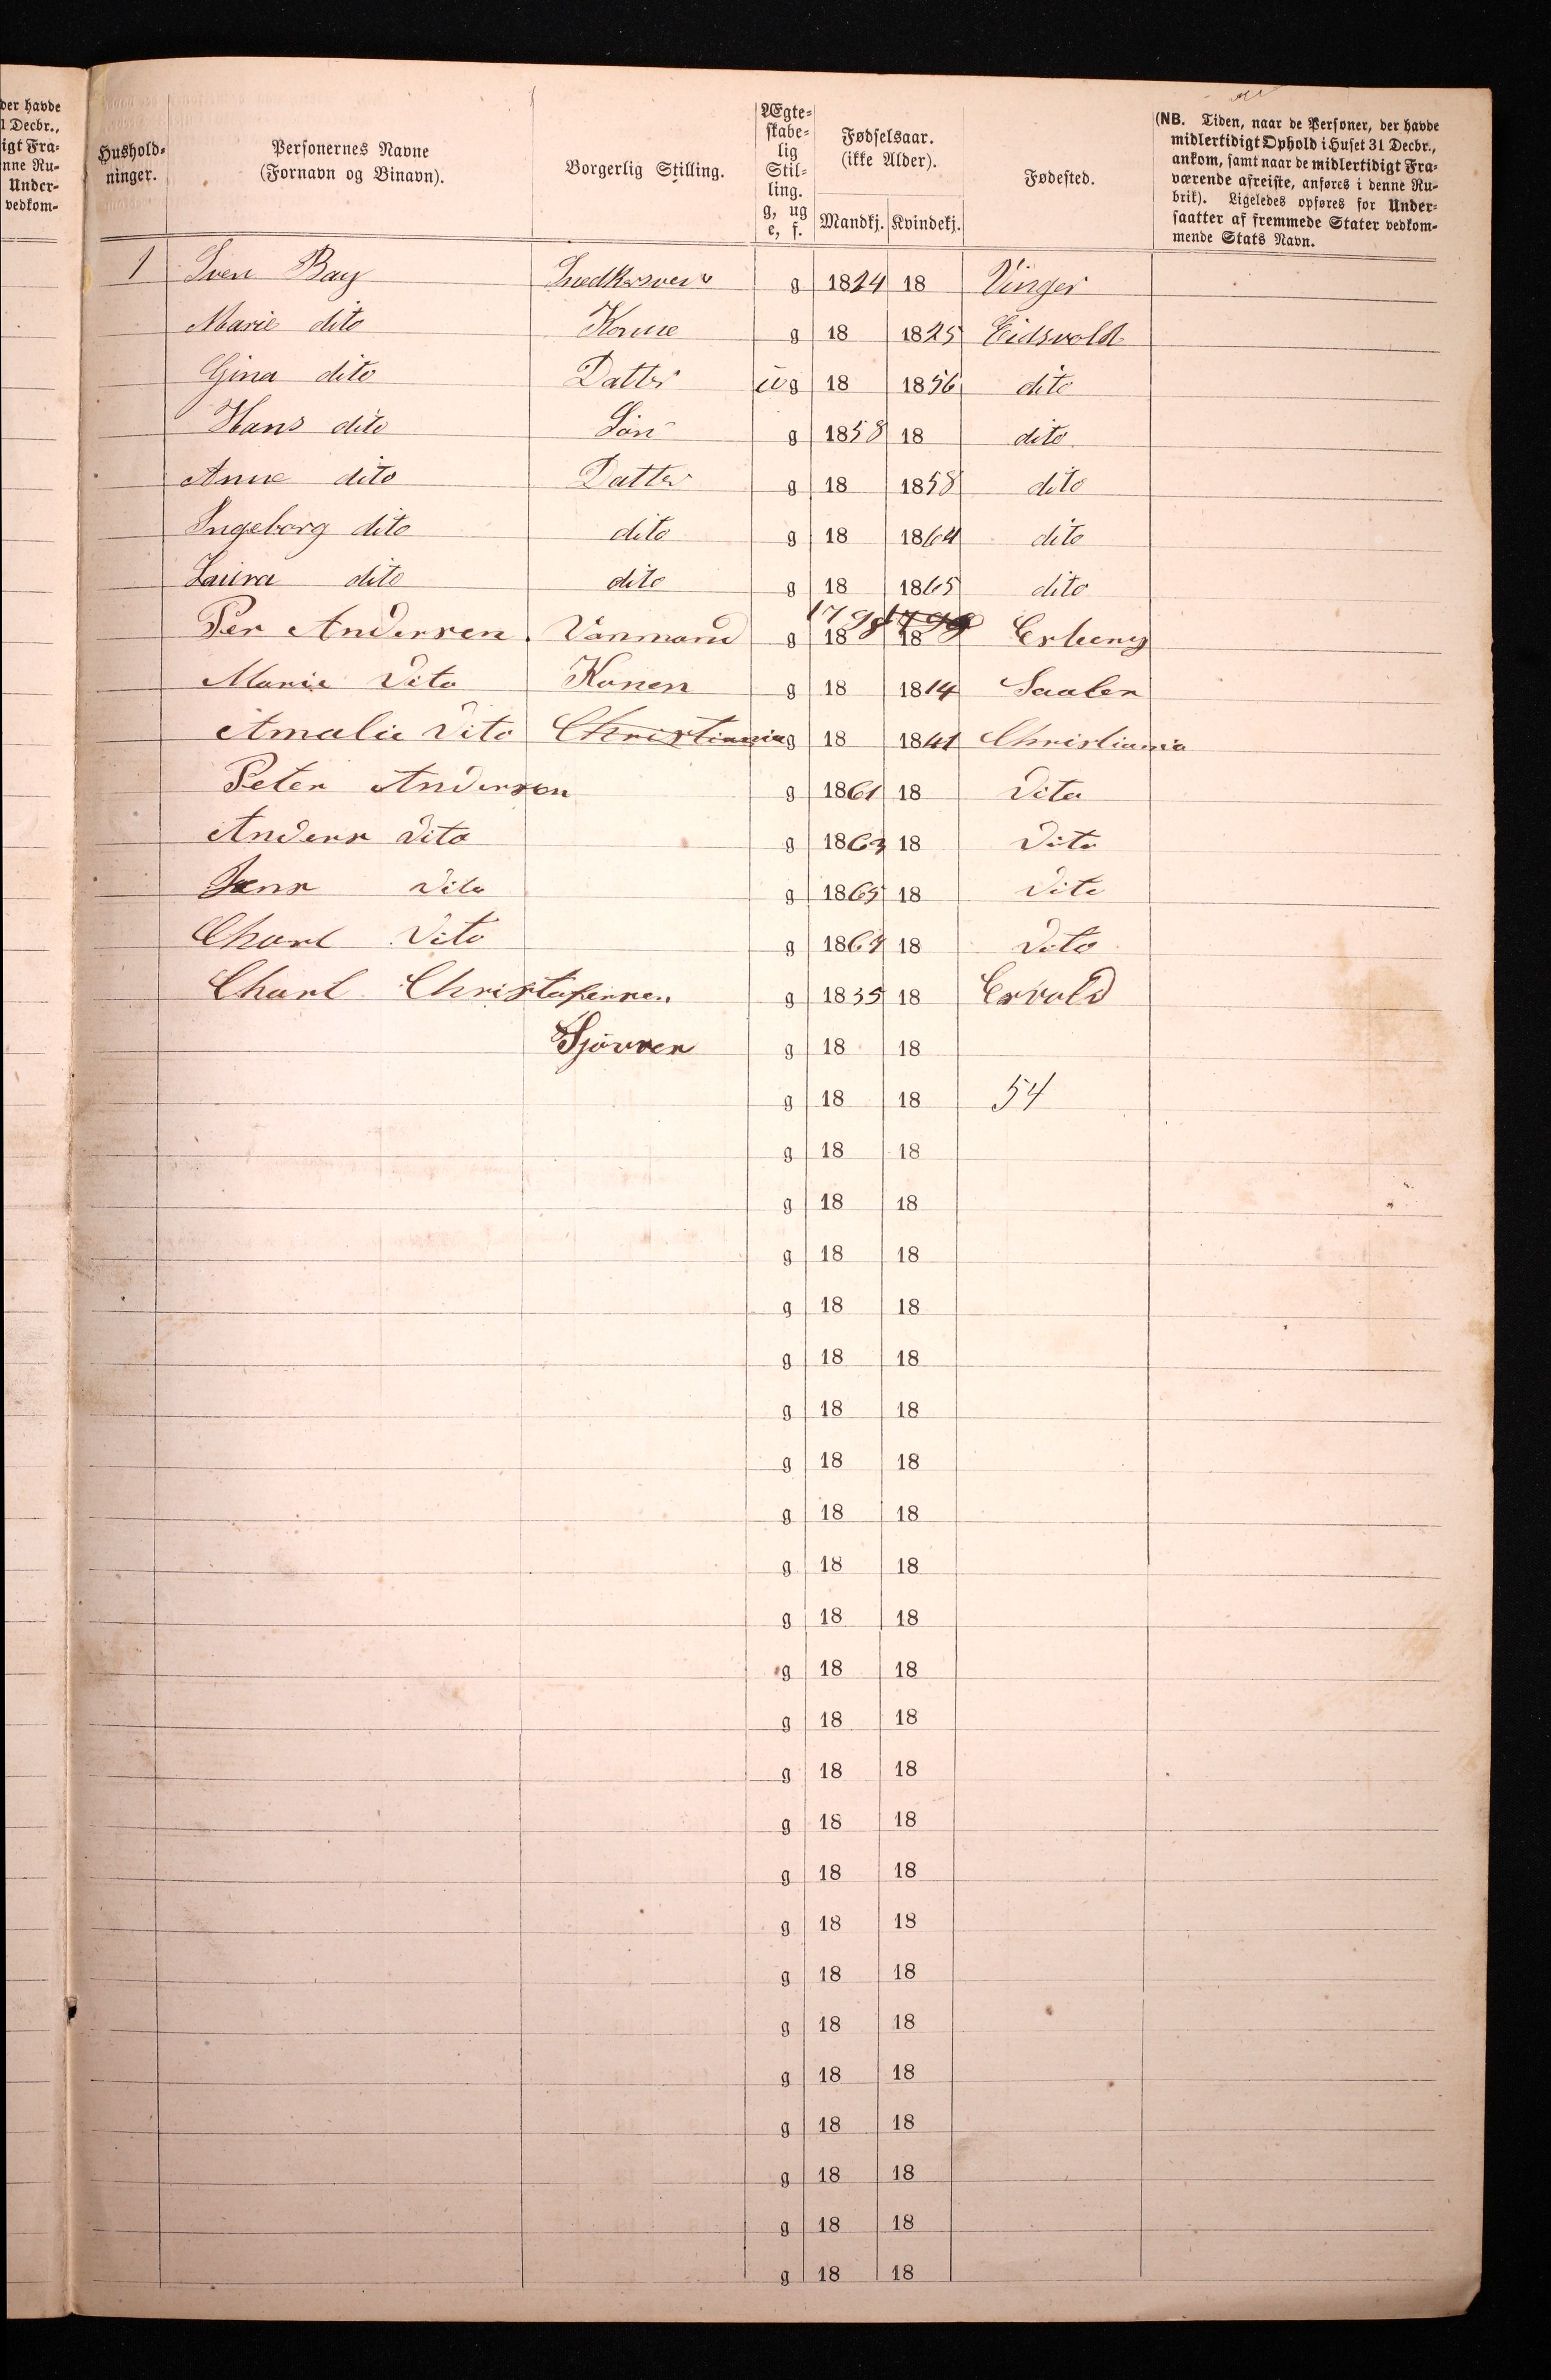 der havde
1 Decbr.,
igt Fra-
nne Ru-
Under-
vedkom-
Hushold-
ninger.
Personernes Navne
(Fornavn og Binavn).
Borgerlig Stilling.
Ægte-
skabe-
lig
Stil-
ling.
g, ug
e, f.
Fødselsaar.
(ikke Alder).
Mandkj. Kvindekj.
Fødested.
(NB. Tiden, naar de Personer, der havde
midlertidigt Ophold i Huset 31 Decbr.,
ankom, samt naar de midlertidigt Fra-
værende afreiste, anføres i denne Ru-
brik). Ligeledes opføres for Under-
saatter af fremmede Stater vedkom-
mende Stats Navn.
1 Sven Bay Snedkersven g 1824 18 Vinger
Marie dito Kone g 18 1825 Eidsvold
Gina dito Datter ug 18 1856 dito
Hans dito Sön g 1858 18 dito
Anne dito Datter g 18 1858 dito
Ingeborg dito dito g 18 1864 dito
Laura dito dito g 18 1865 dito
1798 1798
Per Andersen Vanmand g 18 18
Marie Dito Konen g 18 1814 Saaler
Amalie Dito Christiania g 18 1841 Christiania
Peter Andersen g 1861 18 Dito
Anders Dito g 1863 18 Dito
Jens Dito g 1865 18 Dito
Charl Dito g 1864 18 Dito
Charl Christofersen g 1835 18 Esvold
g 18 18
g 18 18 54
g 18 18
g 18 18
g 18 18
g 18 18
g 18 18
g 18 18
g 18 18
g 18 18
g 18 18
g 18 18
g 18 18
g 18 18
g 18 18
g 18 18
g 18 18
g 18 18
g 18 18
g 18 18
g 18 18
g 18 18
g 18 18
g 18 18
g 18 18